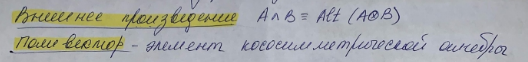 Внешнее произведение A∧B = Alt (A⊗B)
Поливектор - элемент кососимметрической алгебры